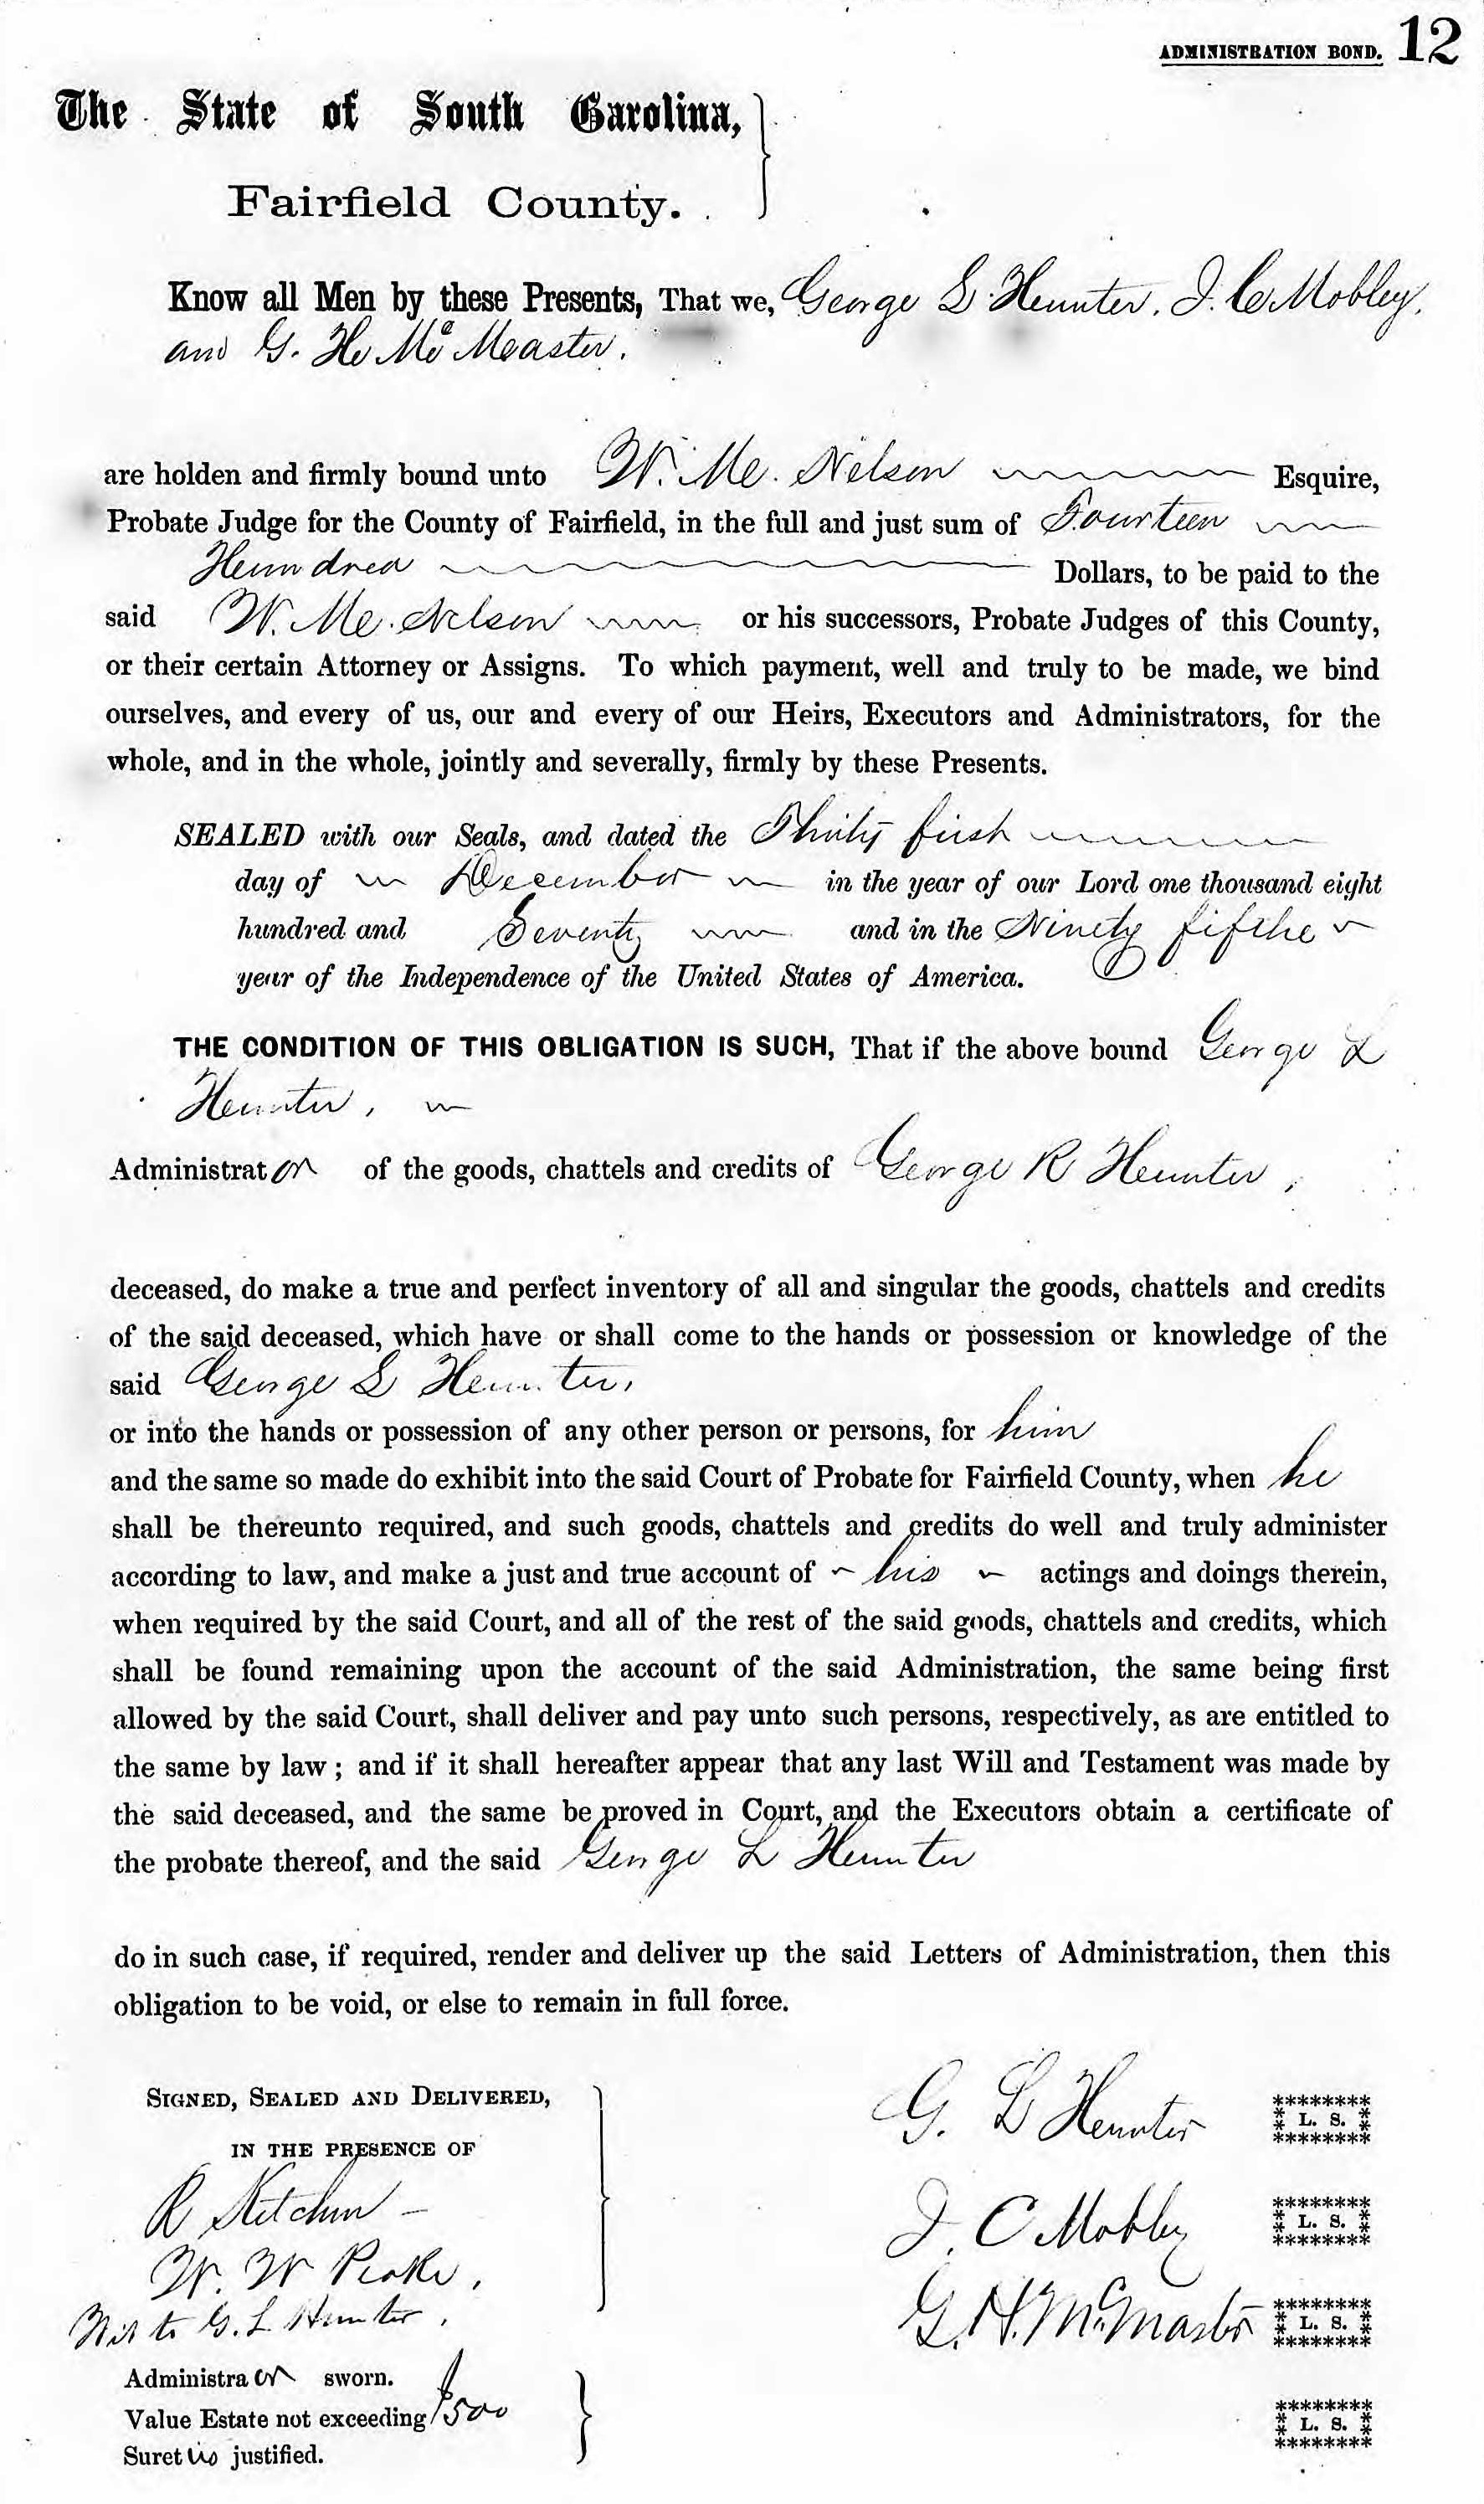 ADMINISTRATION BOND. 12
The State of South Carolina,
Fairfield County.
Know all Men by these Presents, That we, George L Hunter, J. C Mobley,
and G. H. McMaster.
are holden and firmly bound unto W. M. Nelson Esquire,
Probate Judge for the County of Fairfield, in the full and just sum of Fourteen
Hundred Dollars, to be paid to the
said W. M. Nelson or his successors, Probate Judges of this County,
or their certain Attorney or Assigns. To which payment, well and truly to be made, we bind
ourselves, and every of us, our and every of our Heirs, Executors and Administrators, for the
whole, and in the whole, jointly and severally, firmly by these Presents.
SEALED with our Seals, and dated the Thirty first
day of December in the year of our Lord one thousand eight
hundred and Seventy and in the Ninety fifthe
year of the Independence of the United States of America.
THE CONDITION OF THIS OBLIGATION IS SUCH, That if the above bound George L
Hunter,
Administrator of the goods, chattels and credits of George R Hunter,
deceased, do make a true and perfect inventory of all and singular the goods, chattels and credits
of the said deceased, which have or shall come to the hands or possession or knowledge of the
said George L Hunter,
or into the hands or possession of any other person or persons, for him
and the same so made do exhibit into the said Court of Probate for Fairfield County, when he
shall be thereunto required, and such goods, chattels and credits do well and truly administer
according to law, and make a just and true account of his actings and doings therein,
when required by the said Court, and all of the rest of the said goods, chattels and credits, which
shall be found remaining upon the account of the said Administration, the same being first
allowed by the said Court, shall deliver and pay unto such persons, respectively, as are entitled to
the same by law; and if it shall hereafter appear that any last Will and Testament was made by
the said deceased, and the same be proved in Court, and the Executors obtain a certificate of
the probate thereof, and the said George L Hunter
do in such case, if required, render and deliver up the said Letters of Administration, then this
obligation to be void, or else to remain in full force.
SIGNED, SEALED AND DELIVERED,
IN THE PRESENCE OF
R Ketchin
W. W Peake,
Wit to G. L Hunter.
G. L Hunter L. S.
J. C Mobley L. S.
G. H. McMaster L. S.
L. S.
Administrator sworn.
Value Estate not exceeding $500
Sureties justified.